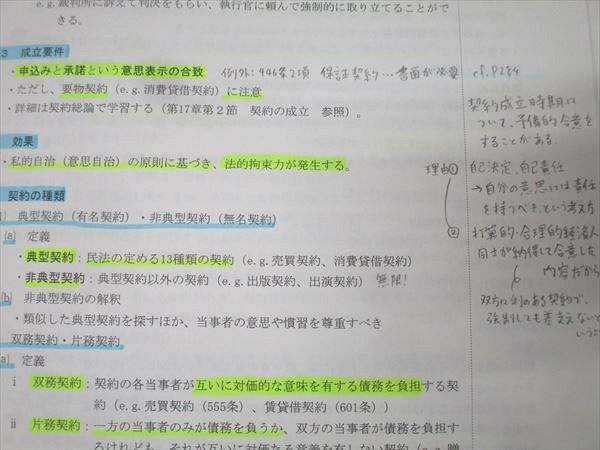 e.g. 裁判所に訴えて判決をもらい、執行官に頼んで強制的に取り立てることがで
きる。
3 成立要件
・申込みと承諾という意思表示の合致 例外：446条2項 保証契約…書面が必要 cf.P284
・ただし、要物契約（e.g.消費貸借契約）に注意
・詳細は契約総論で学習する（第17章第2節 契約の成立 参照）。
契約成立時期に
ついて、予備的合意を
することがある。
効果
・私的自治（意思自治）の原則に基づき、法的拘束力が発生する。
理由① 自己決定、自己責任
→自分の意思には責任
を持つべき、という考え方
② 打算的・合理的経済人
同士が納得して合意した
内容だから
双方に利のある契約で、
強制しても差支えないと
いう
契約の種類
典型契約（有名契約）・非典型契約（無名契約）
(a) 定義
・典型契約：民法の定める13種類の契約（e.g.売買契約、消費貸借契約）
・非典型契約：典型契約以外の契約（e.g.出版契約、出演契約） 無限！
(b) 非典型契約の解釈
・類似した典型契約を探すほか、当事者の意思や慣習を尊重すべき
双務契約・片務契約
(a) 定義
i 双務契約：契約の各当事者が互いに対価的な意味を有する債務を負担する契
約（e.g.売買契約（555条）、賃貸借契約（601条））
ii 片務契約：一方の当事者のみが債務を負うか、双方の当事者が債務を負担す
るけれども、それが互いに対価たる意義を有しない契約（e.g.贈